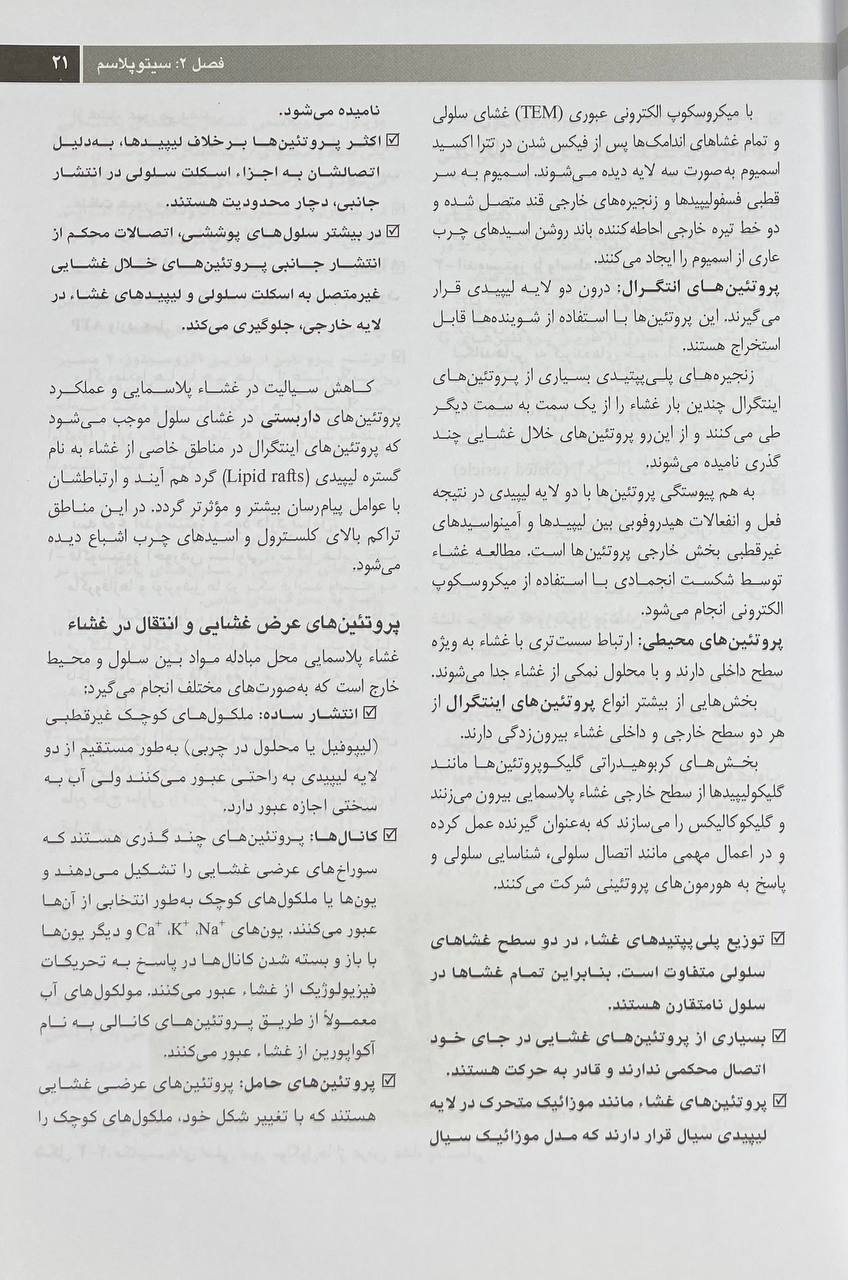 فصل ۲: سیتوپلاسم ۲۱
با میکروسکوپ الکترونی عبوری (TEM) غشای سلولی
و تمام غشاهای اندامک‌ها پس از فیکس شدن در تترا اکسید
اسمیوم به‌صورت سه لایه دیده می‌شوند. اسمیوم به سر
قطبی فسفولیپیدها و زنجیره‌های خارجی قند متصل شده و
دو خط تیره خارجی احاطه‌کننده باند روشن اسیدهای چرب
عاری از اسمیوم را ایجاد می‌کنند.
پروتئین‌های انتگرال: درون دو لایه لیپیدی قرار
می‌گیرند. این پروتئین‌ها با استفاده از شوینده‌ها قابل
استخراج هستند.
زنجیره‌های پلی‌پپتیدی بسیاری از پروتئین‌های
اینتگرال چندین بار غشاء را از یک سمت به سمت دیگر
طی می‌کنند و از این‌رو پروتئین‌های خلال غشایی چند
گذری نامیده می‌شوند.
به هم پیوستگی پروتئین‌ها با دو لایه لیپیدی در نتیجه
فعل و انفعالات هیدروفوبی بین لیپیدها و آمینواسیدهای
غیرقطبی بخش خارجی پروتئین‌ها است. مطالعه غشاء
توسط شکست انجمادی با استفاده از میکروسکوپ
الکترونی انجام می‌شود.
پروتئین‌های محیطی: ارتباط سست‌تری با غشاء به ویژه
سطح داخلی دارند و با محلول نمکی از غشاء جدا می‌شوند.
بخش‌هایی از بیشتر انواع پروتئین‌های اینتگرال از
هر دو سطح خارجی و داخلی غشاء بیرون‌زدگی دارند.
بخش‌های کربوهیدراتی گلیکوپروتئین‌ها مانند
گلیکولیپیدها از سطح خارجی غشاء پلاسمایی بیرون می‌زنند
و گلیکوکالیکس را می‌سازند که به‌عنوان گیرنده عمل کرده
و در اعمال مهمی مانند اتصال سلولی، شناسایی سلولی و
پاسخ به هورمون‌های پروتئینی شرکت می‌کنند.
☑ توزیع پلی‌پپتیدهای غشاء در دو سطح غشاهای
سلولی متفاوت است. بنابراین تمام غشاها در
سلول نامتقارن هستند.
☑ بسیاری از پروتئین‌های غشایی در جای خود
اتصال محکمی ندارند و قادر به حرکت هستند.
☑ پروتئین‌های غشاء مانند موزائیک متحرک در لایه
لیپیدی سیال قرار دارند که مدل موزائیک سیال
نامیده می‌شود.
☑ اکثر پروتئین‌ها برخلاف لیپیدها، به‌دلیل
اتصالشان به اجزاء اسکلت سلولی در انتشار
جانبی، دچار محدودیت هستند.
☑ در بیشتر سلول‌های پوششی، اتصالات محکم از
انتشار جانبی پروتئین‌های خلال غشایی
غیرمتصل به اسکلت سلولی و لیپیدهای غشاء در
لایه خارجی، جلوگیری می‌کند.
کاهش سیالیت در غشاء پلاسمایی و عملکرد
پروتئین‌های داربستی در غشای سلول موجب می‌شود
که پروتئین‌های اینتگرال در مناطق خاصی از غشاء به نام
گستره لیپیدی (Lipid rafts) گرد هم آیند و ارتباطشان
با عوامل پیام‌رسان بیشتر و مؤثرتر گردد. در این مناطق
تراکم بالای کلسترول و اسیدهای چرب اشباع دیده
می‌شود.
پروتئین‌های عرض غشایی و انتقال در غشاء
غشاء پلاسمایی محل مبادله مواد بین سلول و محیط
خارج است که به‌صورت‌های مختلف انجام می‌گیرد:
☑ انتشار ساده: ملکول‌های کوچک غیرقطبی
(لیپوفیل یا محلول در چربی) به‌طور مستقیم از دو
لایه لیپیدی به راحتی عبور می‌کنند ولی آب به
سختی اجازه عبور دارد.
☑ کانال‌ها: پروتئین‌های چند گذری هستند که
سوراخ‌های عرضی غشایی را تشکیل می‌دهند و
یون‌ها یا ملکول‌های کوچک به‌طور انتخابی از آن‌ها
عبور می‌کنند. یون‌های Na⁺، K⁺، Ca⁺ و دیگر یون‌ها
با باز و بسته شدن کانال‌ها در پاسخ به تحریکات
فیزیولوژیک از غشاء عبور می‌کنند. مولکول‌های آب
معمولاً از طریق پروتئین‌های کانالی به نام
آکواپورین از غشاء عبور می‌کنند.
☑ پروتئین‌های حامل: پروتئین‌های عرضی غشایی
هستند که با تغییر شکل خود، ملکول‌های کوچک را